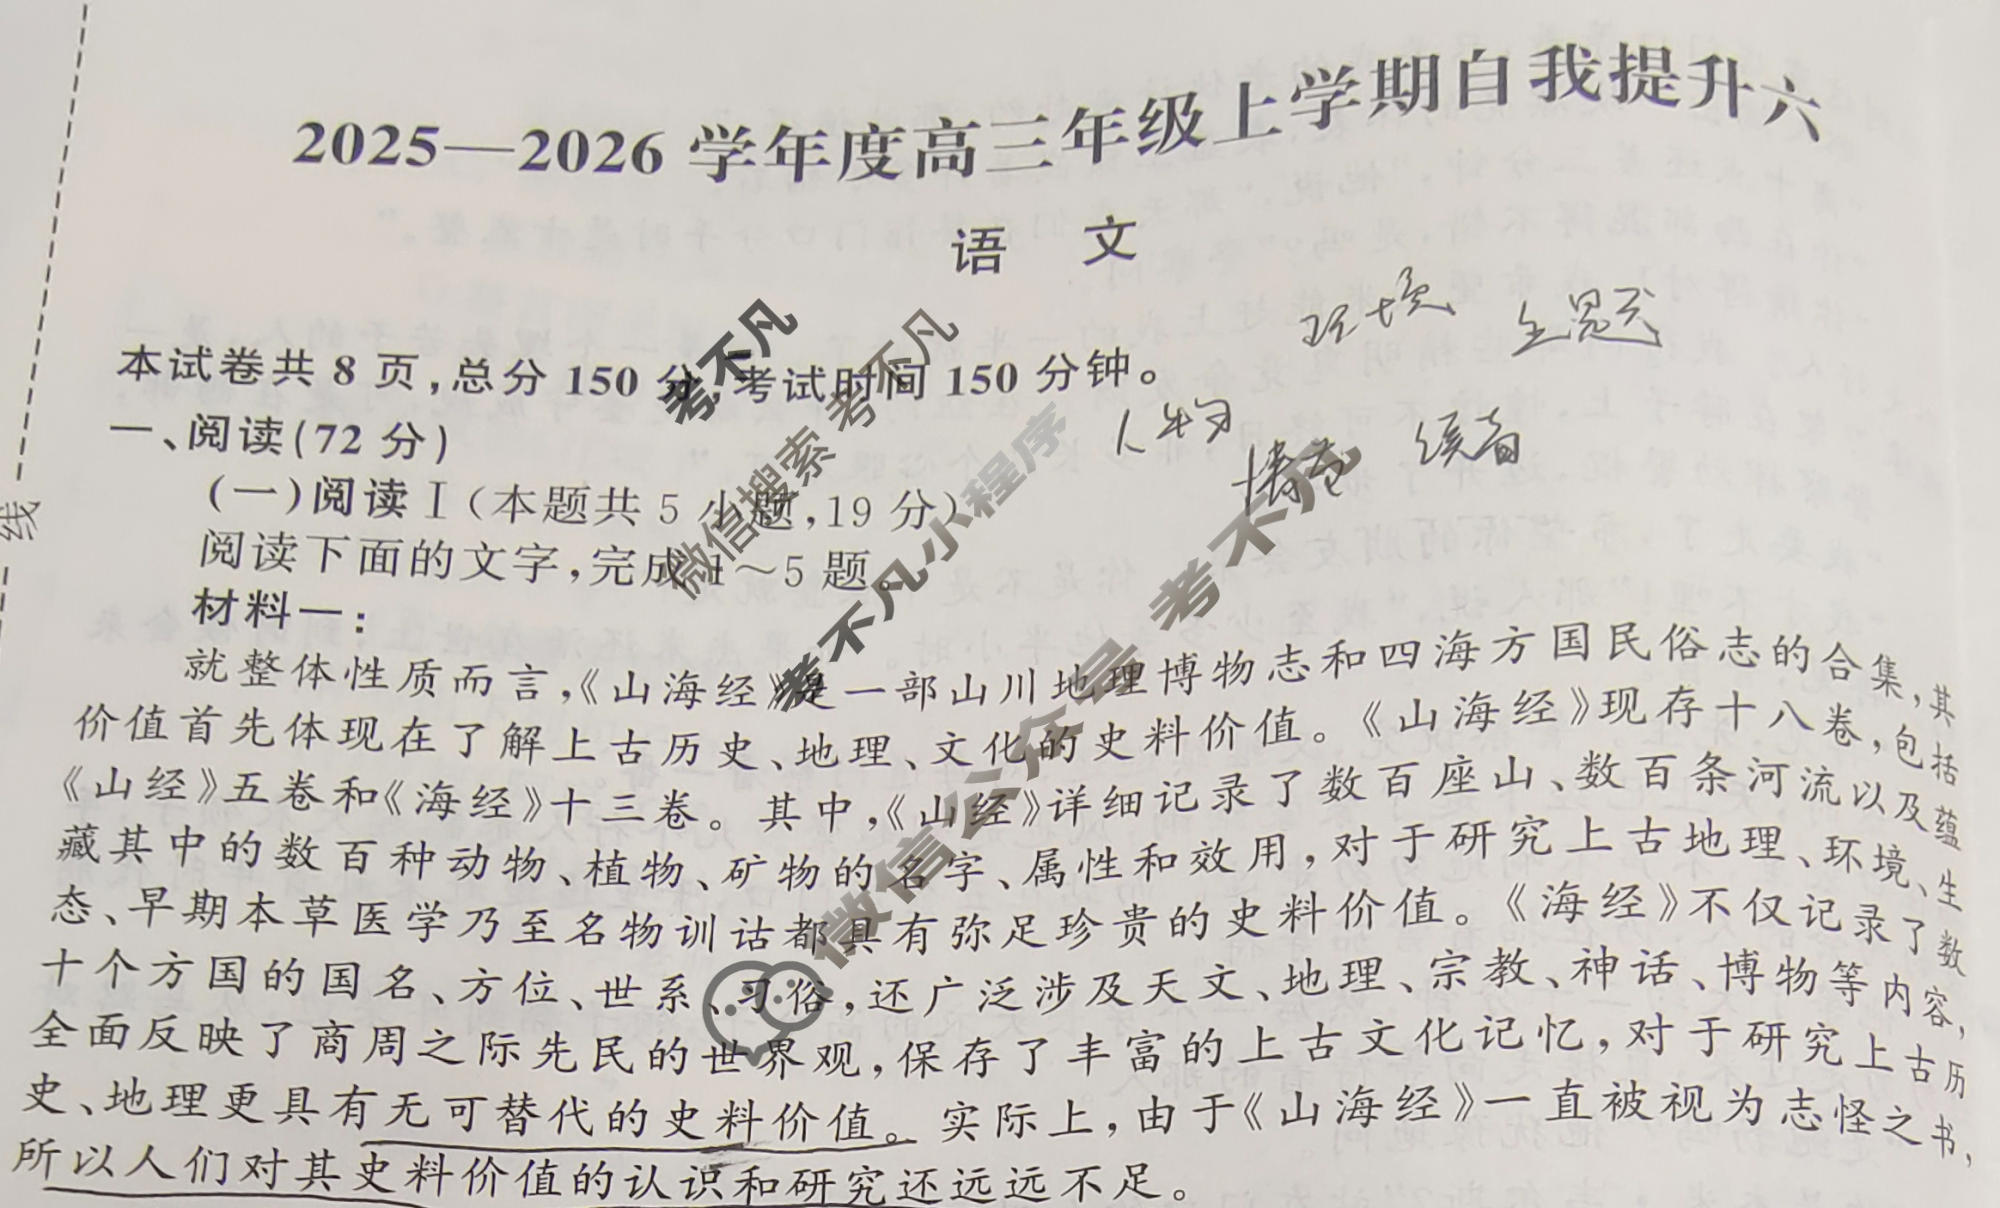 2025—2026 学年度高三年级上学期自我提升六
语 文
环境 主题
本试卷共 8 页,总分 150 分,考试时间 150 分钟。
人物 读者
一、阅读(72 分)
(一)阅读Ⅰ(本题共 5 小题,19 分)
阅读下面的文字,完成 1～5 题。
材料一:
就整体性质而言,《山海经》是一部山川地理博物志和四海方国民俗志的合集,其
价值首先体现在了解上古历史、地理、文化的史料价值。《山海经》现存十八卷,包括
《山经》五卷和《海经》十三卷。其中,《山经》详细记录了数百座山、数百条河流以及蕴
藏其中的数百种动物、植物、矿物的名字、属性和效用,对于研究上古地理、环境、生
态、早期本草医学乃至名物训诂都具有弥足珍贵的史料价值。《海经》不仅记录了数
十个方国的国名、方位、世系、习俗,还广泛涉及天文、地理、宗教、神话、博物等内容,
全面反映了商周之际先民的世界观,保存了丰富的上古文化记忆,对于研究上古历
史、地理更具有无可替代的史料价值。实际上,由于《山海经》一直被视为志怪之书,
所以人们对其史料价值的认识和研究还远远不足。
线
考不凡
微信搜索 考不凡
考不凡小程序
微信公众号 考不凡